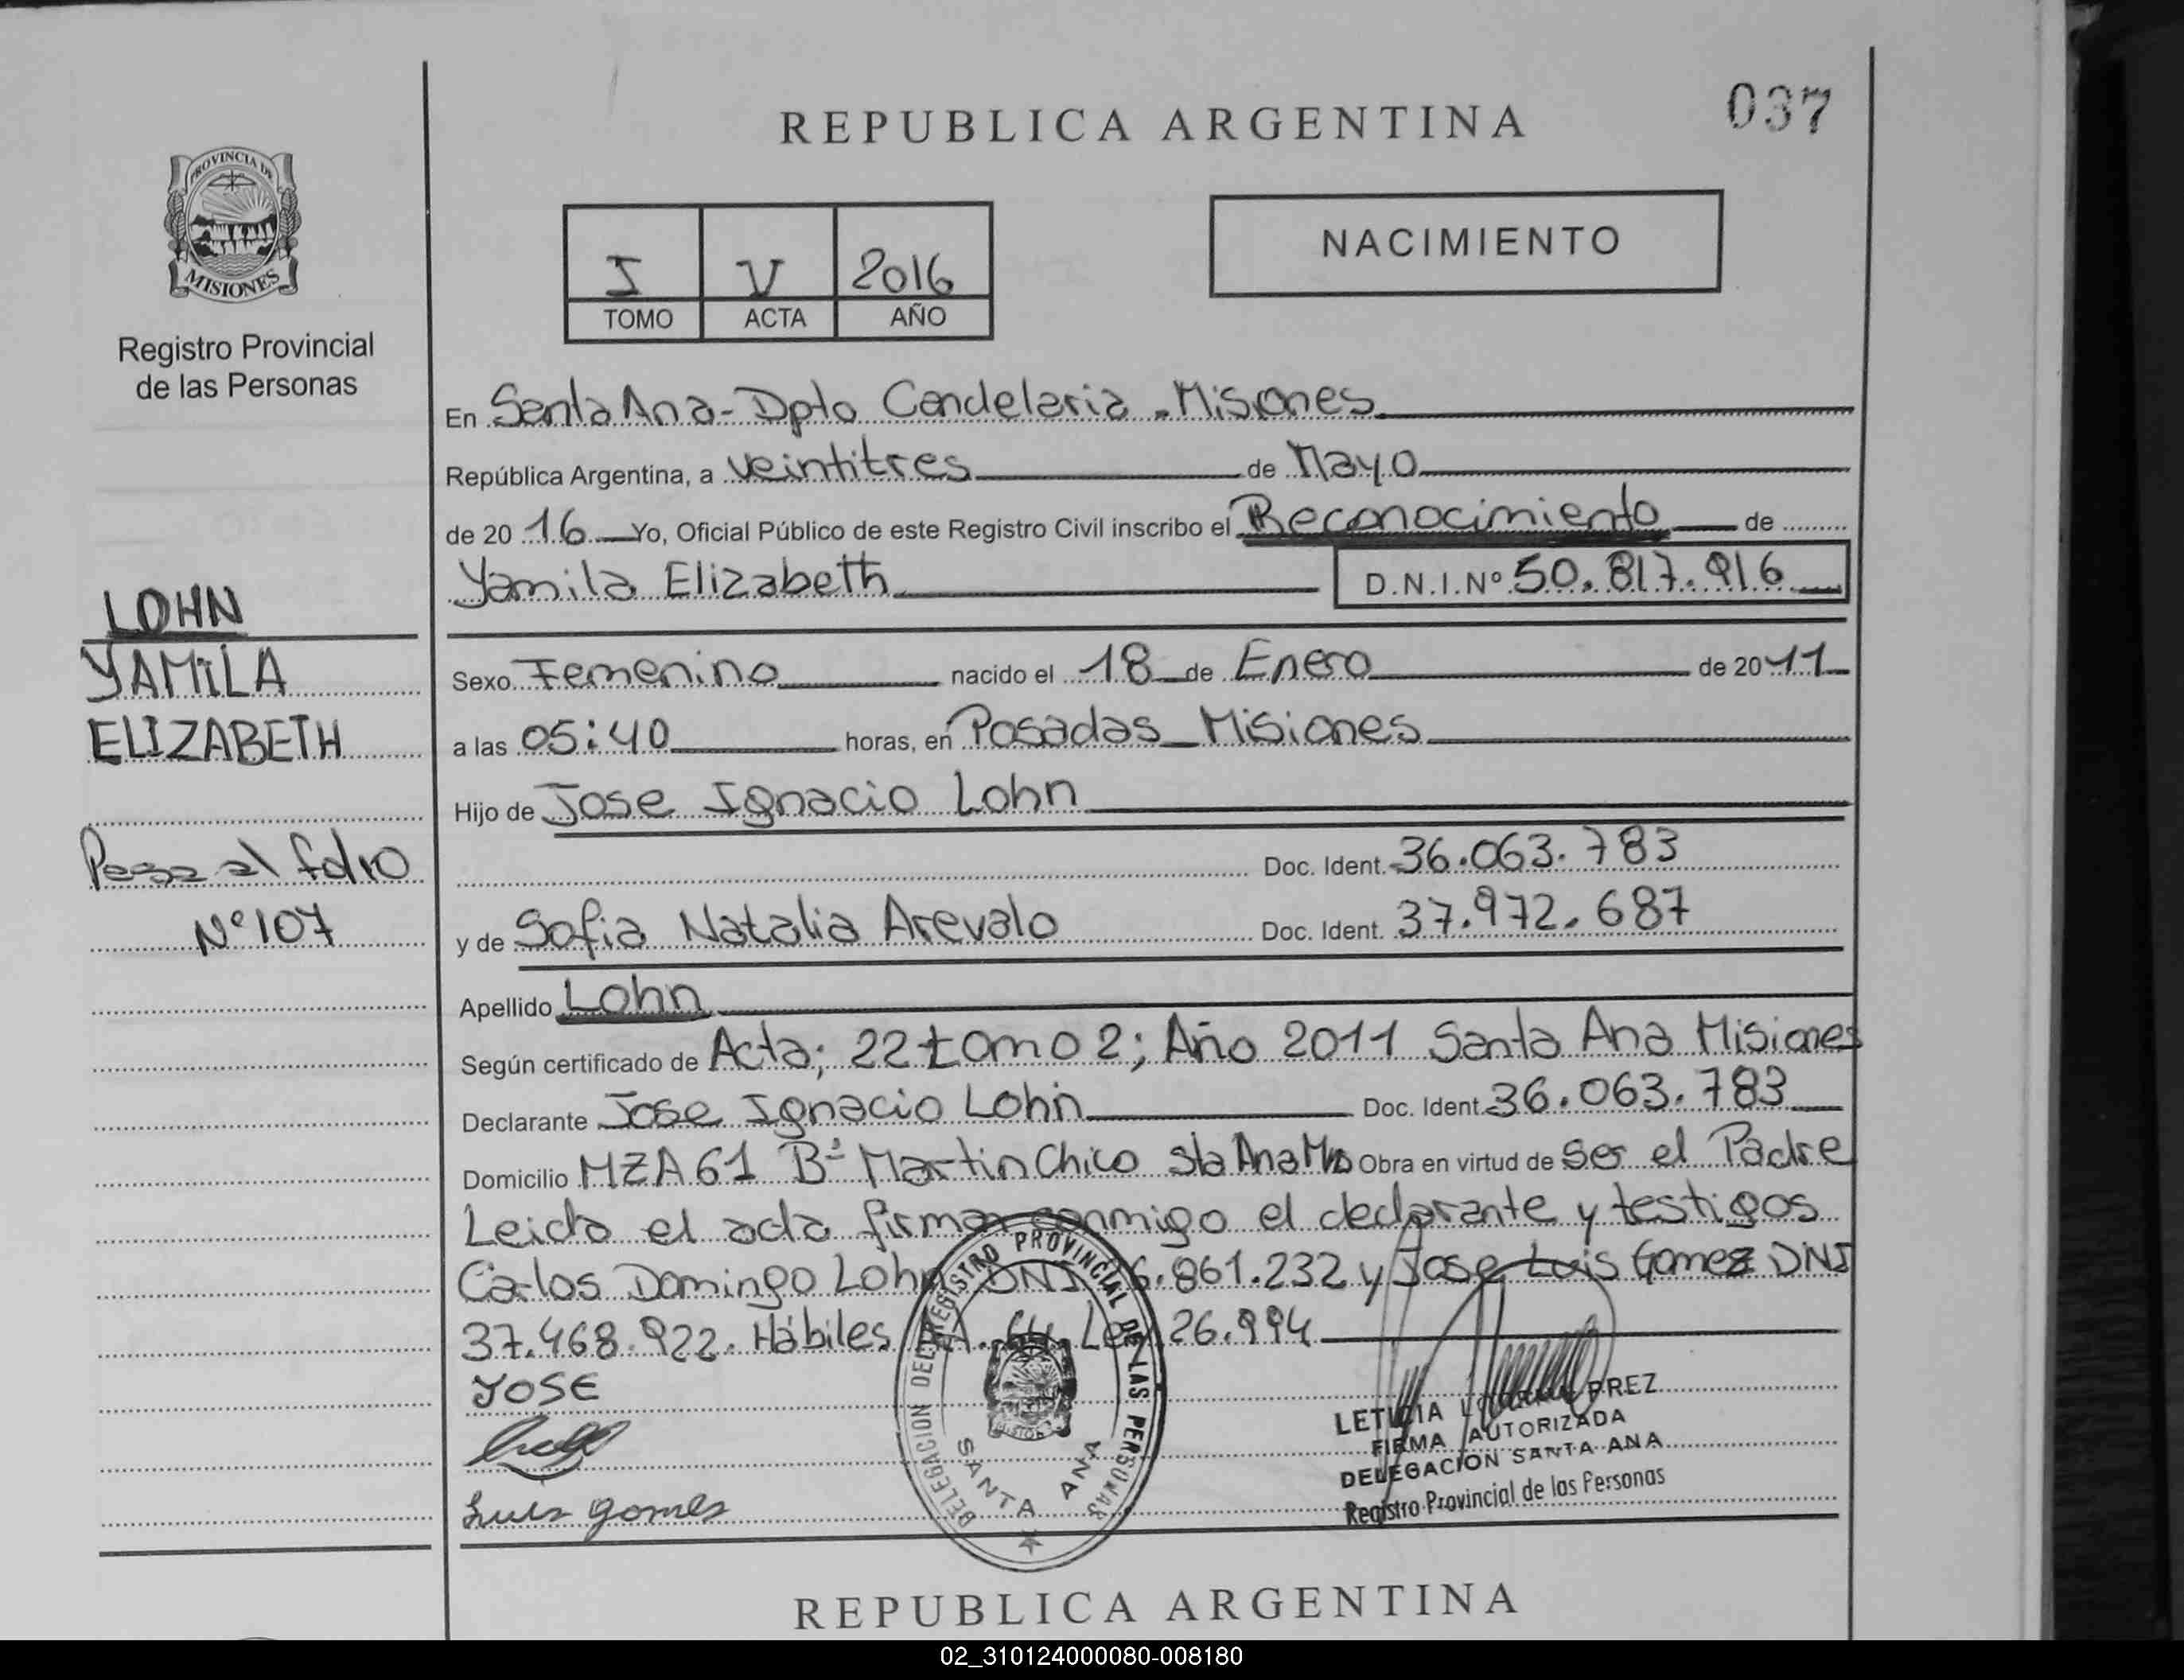 REPUBLICA ARGENTINA
037
PROVINCIA DE
MISIONES
Registro Provincial
de las Personas
I V 2016
TOMO ACTA AÑO
NACIMIENTO
En Santa Ana - Dpto Candelaria - Misiones
República Argentina, a veintitres de Mayo
de 20 16 Yo, Oficial Público de este Registro Civil inscribo el Reconocimiento de
Yamila Elizabeth D.N.I.Nº 50.817.916
LOHN
YAMILA
ELIZABETH
Pasa al folio
Nº 107
Sexo Femenino nacido el 18 de Enero de 20 11
a las 05:40 horas, en Posadas Misiones
Hijo de Jose Ignacio Lohn
Doc. Ident. 36.063.783
y de Sofia Natalia Arevalo Doc. Ident. 37.972.687
Apellido Lohn
Según certificado de Acta; 22 tomo 2; Año 2011 Santa Ana Misiones
Declarante Jose Ignacio Lohn Doc. Ident. 36.063.783
Domicilio MZA 61 Bº Martin Chico Sta Ana Mns Obra en virtud de Ser el Padre
Leida el acta firman conmigo el declarante y testigos
Carlos Domingo Lohn DNI 6.861.232 y Jose Luis Gomez DNI
37.468.922. Hábiles A. 64 Ley 26.994
JOSE
Luis gomes
DELEGACION DEL REGISTRO PROVINCIAL DE LAS PERSONAS
SANTA ANA
LETICIA PREZ
FIRMA AUTORIZADA
DELEGACION SANTA ANA
Registro Provincial de las Personas
REPUBLICA ARGENTINA
02_310124000080-008180